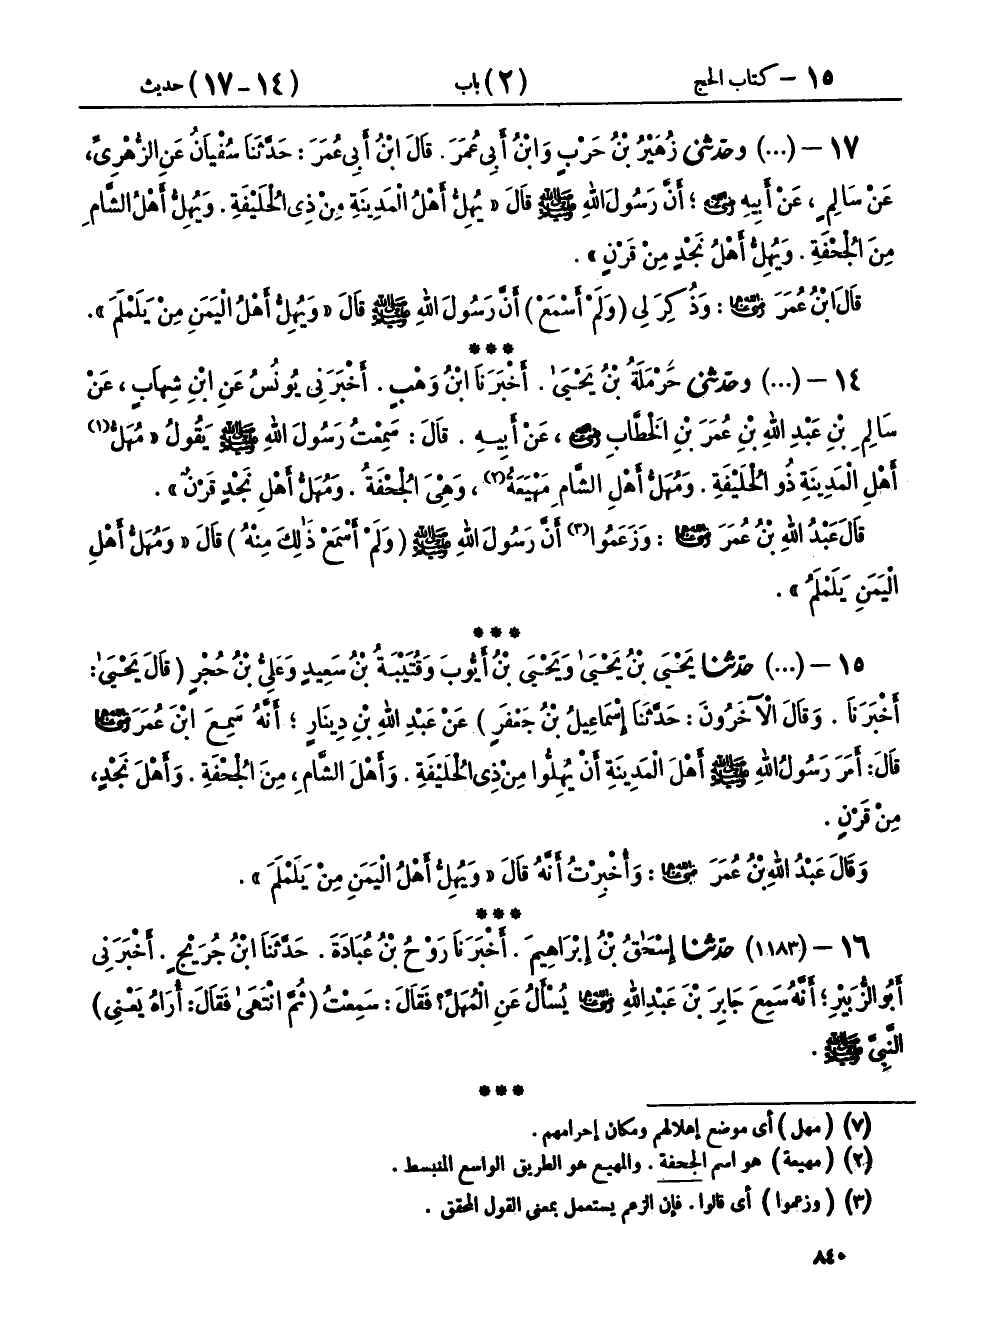 ١٥ – كتاب الحج (٢) باب (١٤–١٧) حديث
١٧ – (...) وحَدَّثَنِي زُهَيْرُ بْنُ حَرْبٍ وَابْنُ أَبِي عُمَرَ . قَالَ ابْنُ أَبِي عُمَرَ : حَدَّثَنَا سُفْيَانُ عَنِ الزُّهْرِىِّ،
عَنْ سَالِمٍ ، عَنْ أَبِيهِ رضى الله عنه ؛ أَنَّ رَسُولَ اللهِ ﷺ قَالَ « يُهِلُّ أَهْلُ الْمَدِينَةِ مِنْ ذِى الْحُلَيْفَةِ . وَيُهِلُّ أَهْلُ الشَّامِ
مِنَ الْجُحْفَةِ . وَيُهِلُّ أَهْلُ نَجْدٍ مِنْ قَرْنٍ » .
قَالَ ابْنُ عُمَرَ رضى الله عنهما : وَذُكِرَ لِى (وَلَمْ أَسْمَعْ) أَنَّ رَسُولَ اللهِ ﷺ قَالَ « وَيُهِلُّ أَهْلُ الْيَمَنِ مِنْ يَلَمْلَمَ » .
***
١٤ – (...) وحَدَّثَنِي حَرْمَلَةُ بْنُ يَحْيَىٰ . أَخْبَرَنَا ابْنُ وَهْبٍ . أَخْبَرَنِى يُونُسُ عَنِ ابْنِ شِهَابٍ ، عَنْ
سَالِمِ بْنِ عَبْدِ اللهِ بْنِ عُمَرَ بْنِ الْخَطَّابِ رضى الله عنه ، عَنْ أَبِيهِ . قَالَ : سَمِعْتُ رَسُولَ اللهِ ﷺ يَقُولُ « مُهَلُّ(١)
أَهْلِ الْمَدِينَةِ ذُو الْحُلَيْفَةِ . وَمُهَلُّ أَهْلِ الشَّامِ مَهْيَعَةُ(٢) ، وَهْىَ الْجُحْفَةُ . وَمُهَلُّ أَهْلِ نَجْدٍ قَرْنٌ » .
قَالَ عَبْدُ اللهِ بْنُ عُمَرَ رضى الله عنهما : وَزَعَمُوا(٣) أَنَّ رَسُولَ اللهِ ﷺ ( وَلَمْ أَسْمَعْ ذَٰلِكَ مِنْهُ ) قَالَ « وَمُهَلُّ أَهْلِ
الْيَمَنِ يَلَمْلَمُ » .
***
١٥ – (...) حَدَّثَنَا يَحْيَى بْنُ يَحْيَىٰ وَيَحْيَى بْنُ أَيُّوبَ وَقُتَيْبَةُ بْنُ سَعِيدٍ وَعَلِىُّ بْنُ حُجْرٍ ( قَالَ يَحْيَىٰ:
أَخْبَرَنَا . وَقَالَ الْآخَرُونَ : حَدَّثَنَا إِسْمَاعِيلُ بْنُ جَعْفَرٍ ) عَنْ عَبْدِ اللهِ بْنِ دِينَارٍ ؛ أَنَّهُ سَمِعَ ابْنَ عُمَرَ رضى الله عنهما
قَالَ : أَمَرَ رَسُولُ اللهِ ﷺ أَهْلَ الْمَدِينَةِ أَنْ يُهِلُّوا مِنْ ذِى الْحُلَيْفَةِ . وَأَهْلَ الشَّامِ، مِنَ الْجُحْفَةِ . وَأَهْلَ نَجْدٍ،
مِنْ قَرْنٍ .
وَقَالَ عَبْدُ اللهِ بْنُ عُمَرَ رضى الله عنهما : وَأُخْبِرْتُ أَنَّهُ قَالَ « وَيُهِلُّ أَهْلُ الْيَمَنِ مِنْ يَلَمْلَمَ » .
***
١٦ – (١١٨٣) حَدَّثَنَا إِسْحَٰقُ بْنُ إِبْرَاهِيمَ . أَخْبَرَنَا رَوْحُ بْنُ عُبَادَةَ . حَدَّثَنَا ابْنُ جُرَيْجٍ . أَخْبَرَنِى
أَبُو الزُّبَيْرِ ؛ أَنَّهُ سَمِعَ جَابِرَ بْنَ عَبْدِ اللهِ رضى الله عنهما يُسْأَلُ عَنِ الْمُهَلِّ؟ فَقَالَ : سَمِعْتُ ( ثُمَّ انْتَهَىٰ فَقَالَ: أُرَاهُ يَعْنِى )
النَّبِىَّ ﷺ .
***
(٧) ( مهل ) أى موضع إهلالهم ومكان إحرامهم .
(٢) ( مهيعة ) هو اسم الجحفة . والمهيع هو الطريق الواسع المنبسط .
(٣) ( وزعموا ) أى قالوا . فإن الزعم يستعمل بمعنى القول المحقق .
٨٤٠